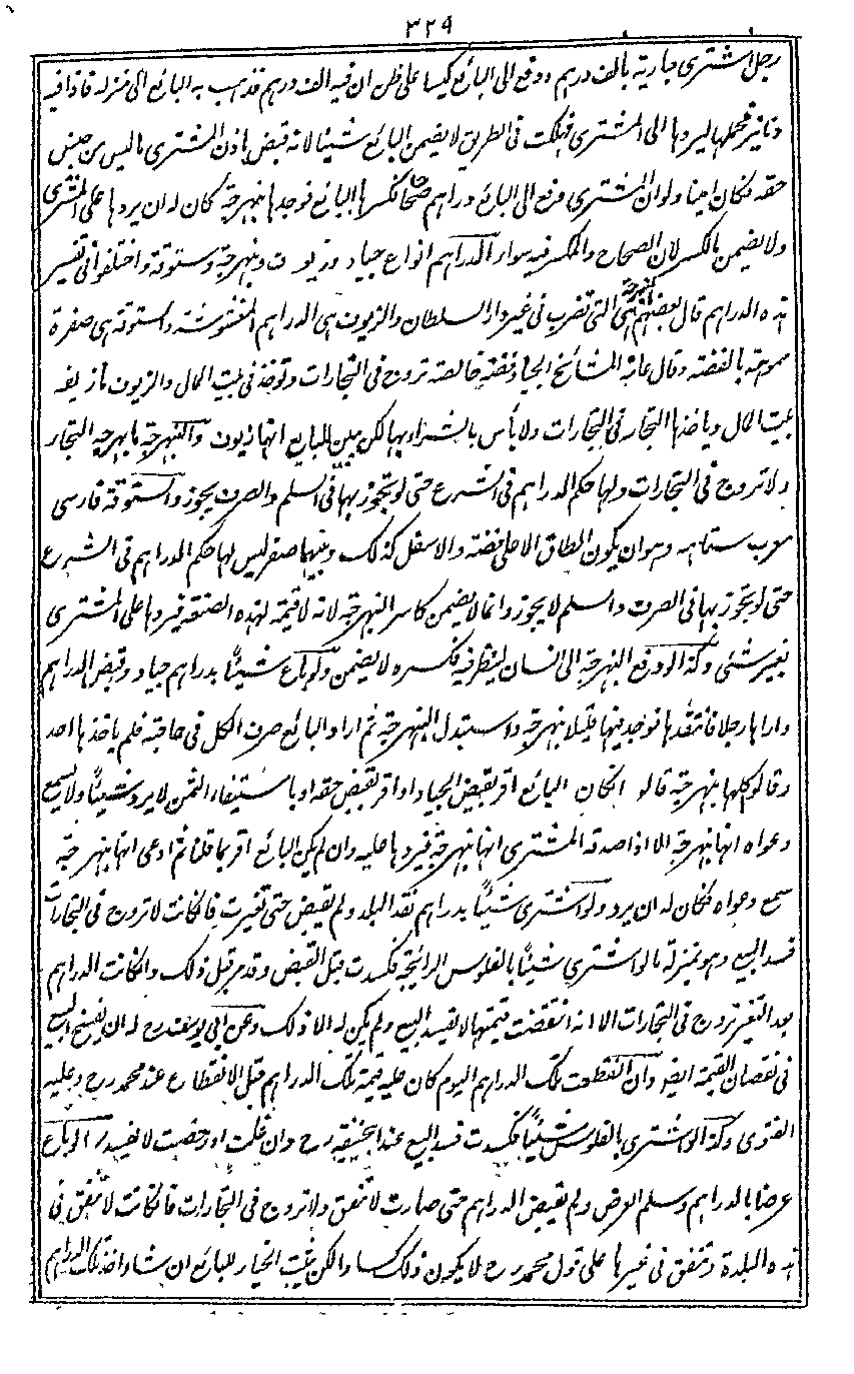 ٣٢٩
رجل اشترى جارية بالف درهم ودفع الى البائع كيسا على ظن ان فيه الف درهم فذهب به البائع الى منزله فاذا فيه
دنانير فحملها ليردها الى المشترى فهلكت فى الطريق لا يضمن البائع شيئا لانه قبض باذن المشترى ما ليس من جنس
حقه فكان امينا ولو ان المشترى دفع الى البائع دراهم صحاحا فكسرها البائع فوجدها نبهرجة كان له ان يردها على المشترى
ولا يضمن بالكسر لان الصحاح والمكسر فيه سواء الدراهم انواع جياد وزيوف ونبهرجة وستوقة واختلفوا فى تفسير
هذه الدراهم قال بعضهم النبهرجة هى التى تضرب فى غير دار السلطان والزيوف هى الدراهم المغشوشة والستوقة هى صفرة
مموهة بالفضة وقال عامة المشائخ الجياد فضة خالصة تروج فى التجارات وتوخذ فى بيت المال والزيوف ما زيفه
بيت المال وياخذها التجار فى التجارات ولا باس بالشراء بها لكن يبين للبايع انها زيوف والنبهرجة ما يبهرجه التجار
ولا تروج فى التجارات ولها حكم الدراهم فى الشرع حتى لو تجوز بها فى السلم والصرف يجوز والستوقة فارسى
معرب سه تاهه وهو ان يكون الطاق الاعلى فضة والاسفل كذلك وبينهما صفر ليس لها حكم الدراهم فى الشرع
حتى لو تجوز بها فى الصرف والسلم لا يجوز وانما لا يضمن كاسر النبهرجة لانه لا قيمة لهذه الصنعة فيردها على المشترى
بغير شئ وكذا لو دفع النبهرجة الى انسان لينظر فيه فكسره لا يضمن ولو باع شيئًا بدراهم جياد وقبض الدراهم
واراها رجلا فانتقدها فوجد فيها قليلا نبهرجة واستبدل النبهرجة ثم اراد البائع صرف الكل فى حاجته فلم ياخذها احد
وقالوا كلها نبهرجة قالوا انكان البائع اقر بقبض الجياد او اقر بقبض حقه او باستيفاء الثمن لا يرد شيئًا ولا يسمع
دعواه انها نبهرجة الا اذا صدقه المشترى انها نبهرجة فيردها عليه وان لم يكن البائع اقر بما قلنا ثم ادعى انها نبهرجة
سمع دعواه فكان له ان يرد ولو اشترى شيئًا بدراهم نقد البلد ولم يقبض حتى تغيرت فان كانت لا تروج فى التجارات
فسد البيع وهو بمنزلة ما لو اشترى شيئًا بالفلوس الرائجة فكسدت قبل القبض وقد مر قبل ذلك وان كانت الدراهم
بعد التغير تروج فى التجارات الا انه انتقصت قيمتها لا يفسد البيع ولم يكن له الا ذلك وعن ابى يوسف رح له ان يفسخ البيع
فى نقصان القيمة ايضا وان انقطعت تلك الدراهم اليوم كان عليه قيمة تلك الدراهم قبل الانقطاع عند محمد رح وعليه
الفتوى وكذا لو اشترى بالفلوس شيئًا فكسدت فسد البيع عند ابى حنيفة رح وان غلت او رخصت لا يفسد ولو باع
عرضا بالدراهم وسلم العرض ولم يقبض الدراهم حتى صارت لا تنفق ولا تروج فى التجارات فان كانت لا تنفق فى
هذه البلدة وتنفق فى غيرها على قول محمد رح لا يكون ذلك كسادا ولكن يثبت الخيار للبائع ان شاء اخذ تلك الدراهم